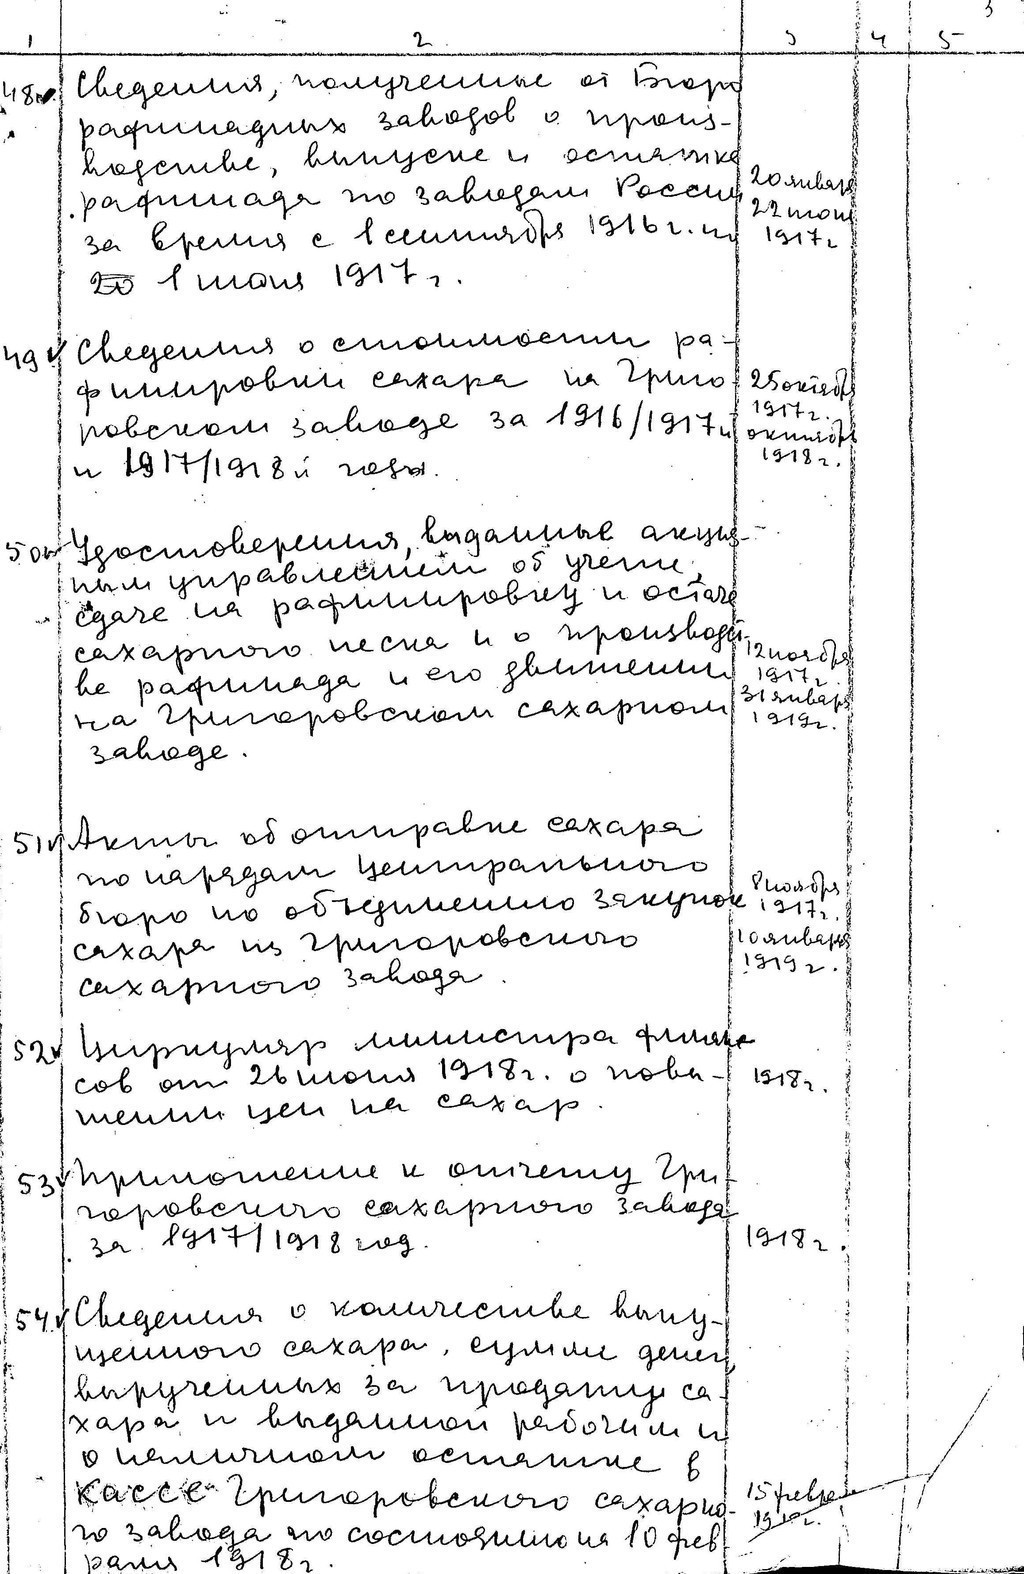 3
1 2 3 4 5
48. Сведения, полученные от Бюро
рафинадных заводов о произ-
водстве, выпуске и остатке
рафинада по заводам России
за время с 1 сентября 1916 г. по
1 июня 1917 г.
20 января
22 июня
1917 г
49 Сведения о стоимости ра-
финировки сахара на Григо-
ровском заводе за 1916/1917й
и 1917/1918й годы.
25 октября
1917 г.
октября
1918 г.
50 Удостоверения, выданные акциз-
ным управлением об учете,
сдаче на рафинировку и остатке
сахарного песка и о производст-
ве рафинада и его движении
на Григоровском сахарном
заводе.
12 ноября
1917 г.
31 января
1919 г.
51 Акты об отправке сахара
по нарядам Центрального
бюро по объединению закупок
сахара из Григоровского
сахарного завода.
8 ноября
1917 г.
10 января
1919 г.
52 Циркуляр министра финан-
сов от 26 июня 1918 г. о повы-
шении цен на сахар.
1918 г.
53 Приложение к отчету Гри-
горовского сахарного завода
за 1917/1918 год.
1918 г.
54 Сведения о количестве выпу-
щенного сахара, сумме денег,
вырученных за продажу са-
хара и выданной рабочим и
о наличном остатке в
кассе Григоровского сахарно-
го завода по состоянию на 10 фев-
раля 1918 г.
15 февраля